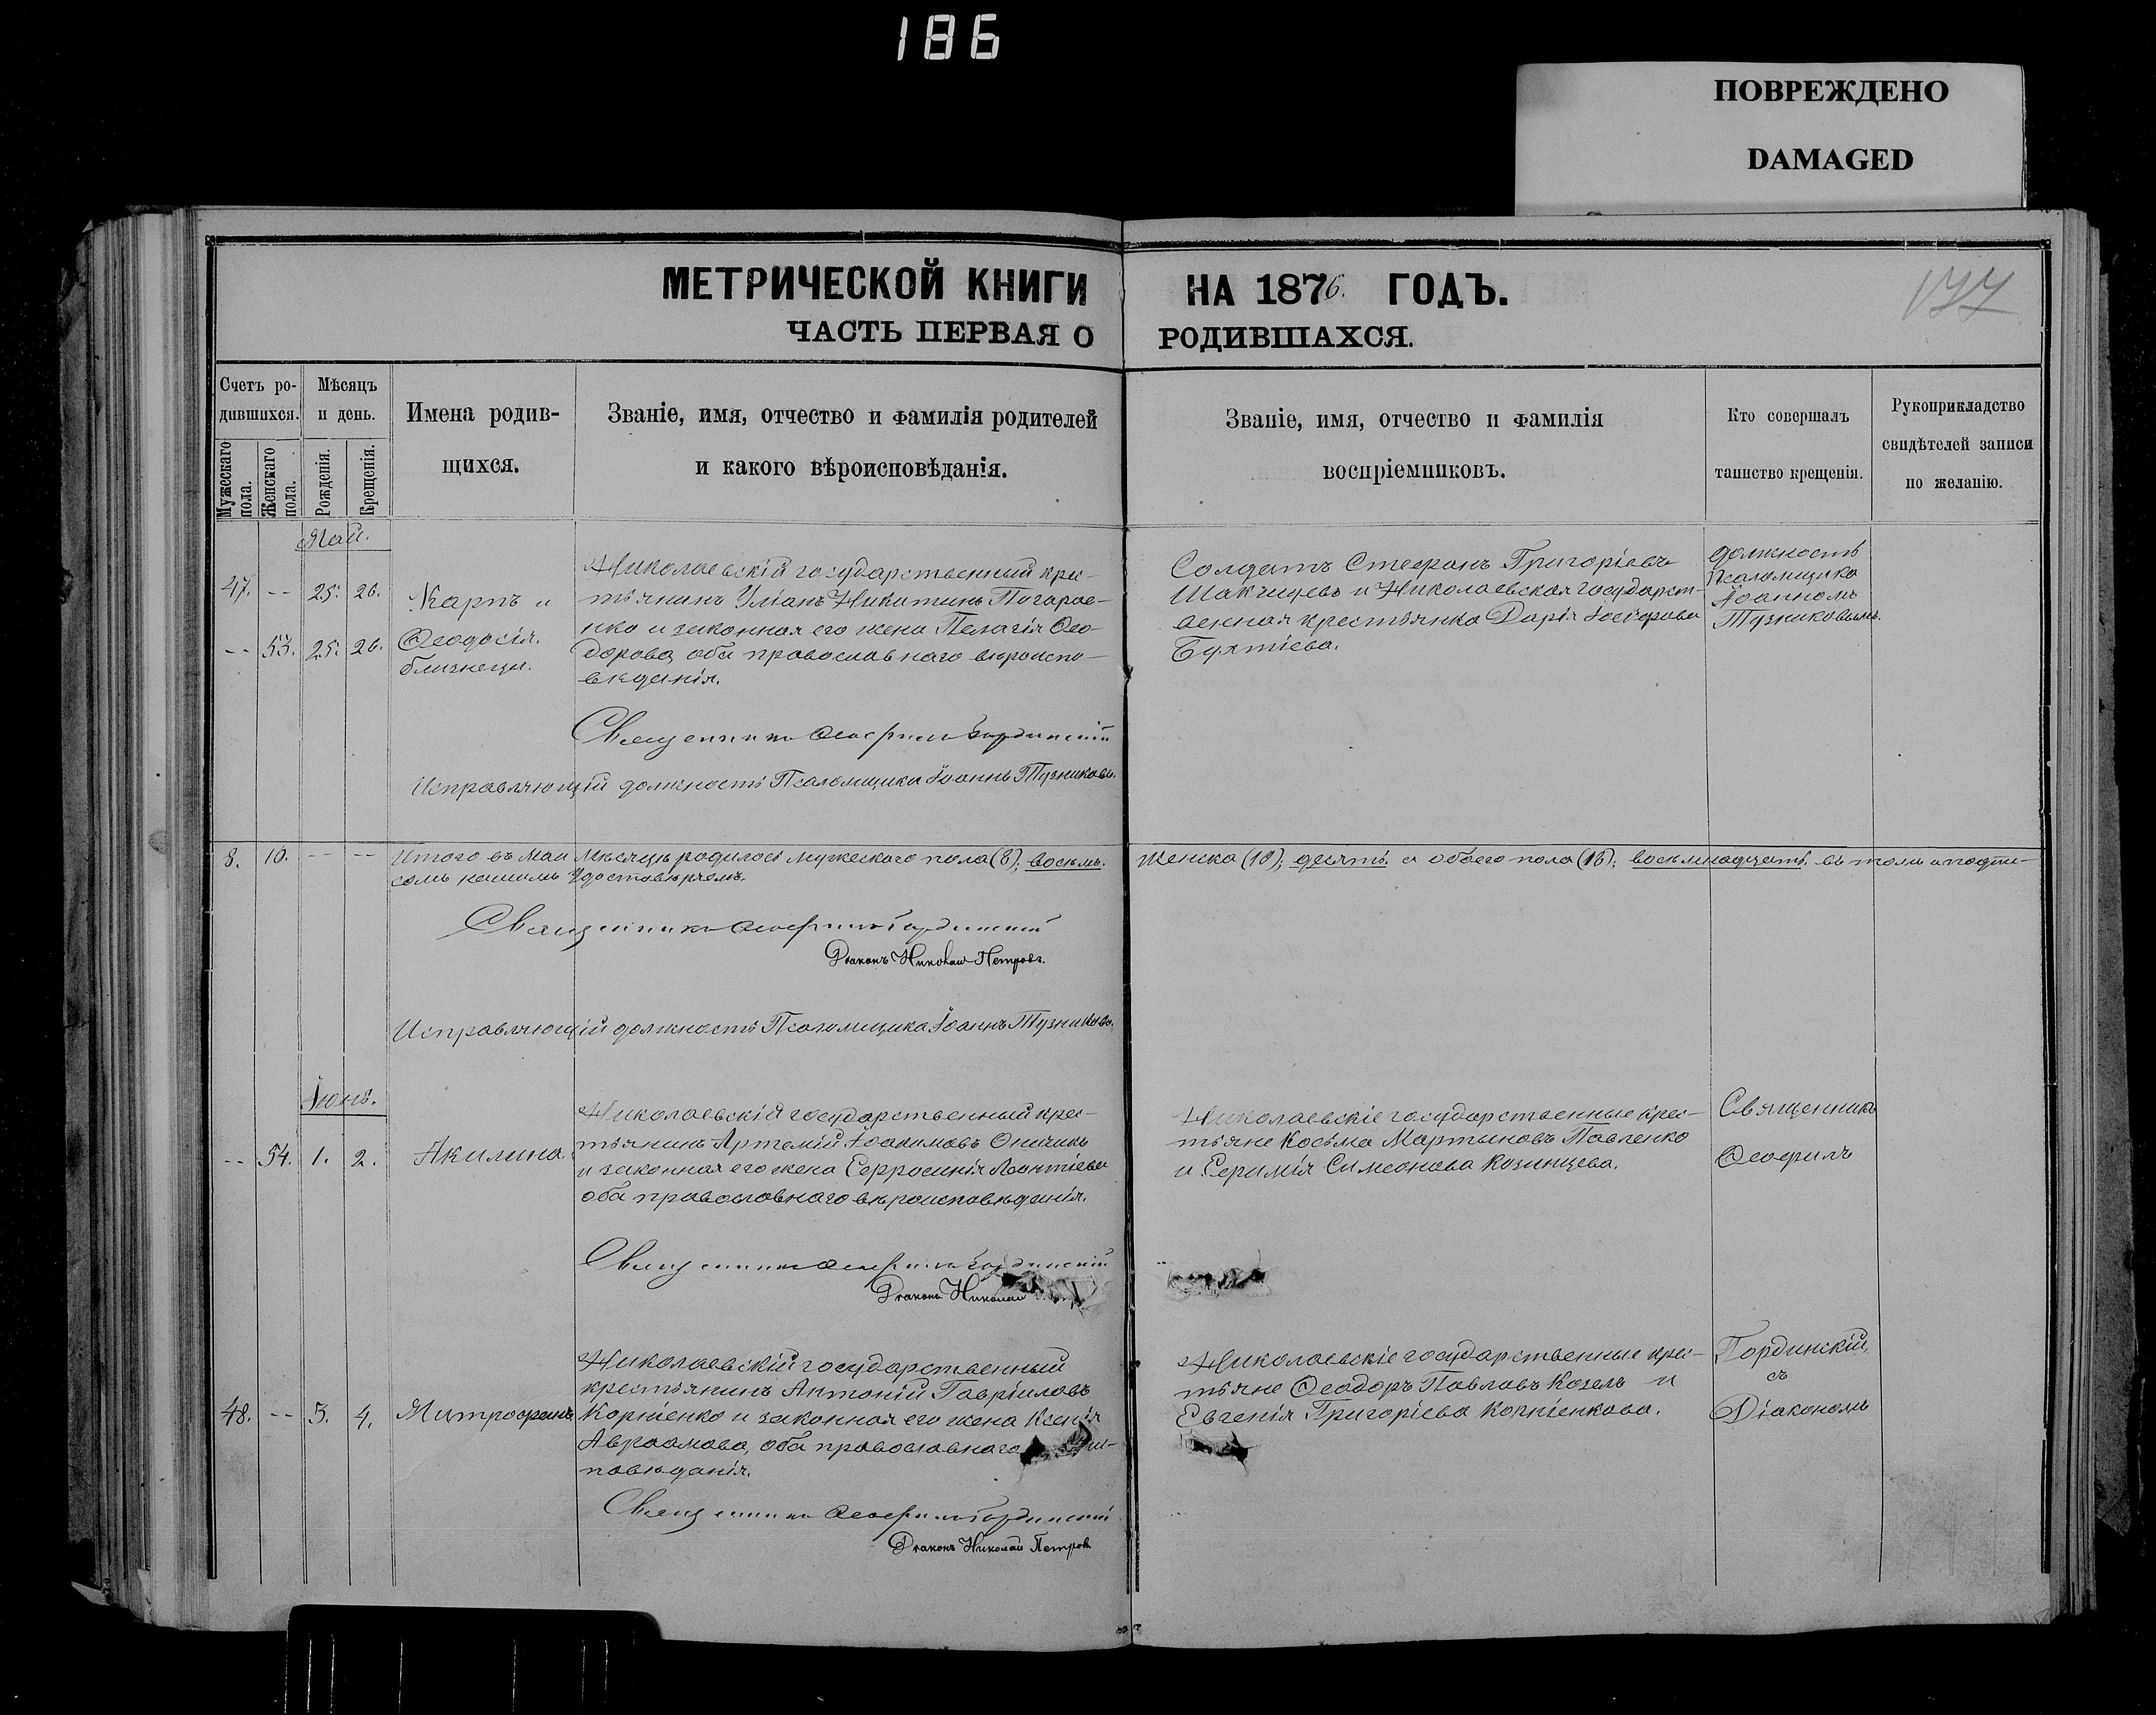 186
ПОВРЕЖДЕНО
DAMAGED
МЕТРИЧЕСКОЙ КНИГИ НА 1876. ГОДЪ.
177
ЧАСТЬ ПЕРВАЯ О РОДИВШАХСЯ.
Счетъ ро-
дившихся.
Мужескаго пола.
Женскаго пола.
Мѣсяцъ
и день.
Рожденія.
Крещенія.
Имена родив-
щихся.
Званіе, имя, отчество и фамилія родителей
и какого вѣроисповѣданія.
Званіе, имя, отчество и фамилія
воспріемниковъ.
Кто совершалъ
таинство крещенія.
Рукоприкладство
свидѣтелей записи
по желанію.
Май.
47. -- 25. 26. Карпъ и
-- 53. 25. 26. Ѳеодосія.
близнецы.
Николаевскій государственный кре-
стьянинъ Уліанъ Никитинъ
нко и законная его жена Пелагія Ѳео-
дорова, оба православнаго вѣроиспо-
вѣданія.
Священникъ Ѳеофилъ Гординскій
Исправляющій должность Псаломщика Іоаннъ Тузниковъ.
Солдатъ Стефанъ Григоріевъ
и Николаевская государст-
венная крестьянка Дарія Іосифова
должность
Псаломщика
Іоанномъ
Тузниковымъ.
8. 10. -- -- Итого въ Маи Мѣсяцѣ родилось мужескаго пола (8); восемь. Женска (10); десять, а обоего пола (18); восемнадцать, въ томъ и подпи-
сомъ нашимъ удостовѣряемъ.
Священникъ Ѳеофилъ Гординскій
Діаконъ Николай Петровъ.
Исправляющій должность Псаломщика Іоаннъ Тузниковъ.
Іюнь.
-- 54. 1. 2. Акилина.
Николаевскій государственный крес-
тьянинъ Артемій Іоакимовъ
и законная его жена Евфросинія Леонтіева
оба православнаго вѣроисповѣданія.
Священникъ Ѳеофилъ Гординскій
Діаконъ Николай
Николаевскіе государственные крес-
тьяне Косьма Мартыновъ Павленко
и Симеонова Козинцева.
Священникъ
Ѳеофилъ
48. -- 3. 4. Митрофанъ
Николаевскій государственный
крестьянинъ Антоній Гавріиловъ
Корніенко и законная его жена Ксенія
Авраамова, оба православнаго
повѣданія.
Священникъ Ѳеофилъ Гординскій
Діаконъ Николай Петровъ
Николаевскіе государственные крес-
тьяне Ѳеодоръ Павловъ Козелъ и
Евгенія Григоріева Корніенкова.
Гординскій,
съ
Діакономъ